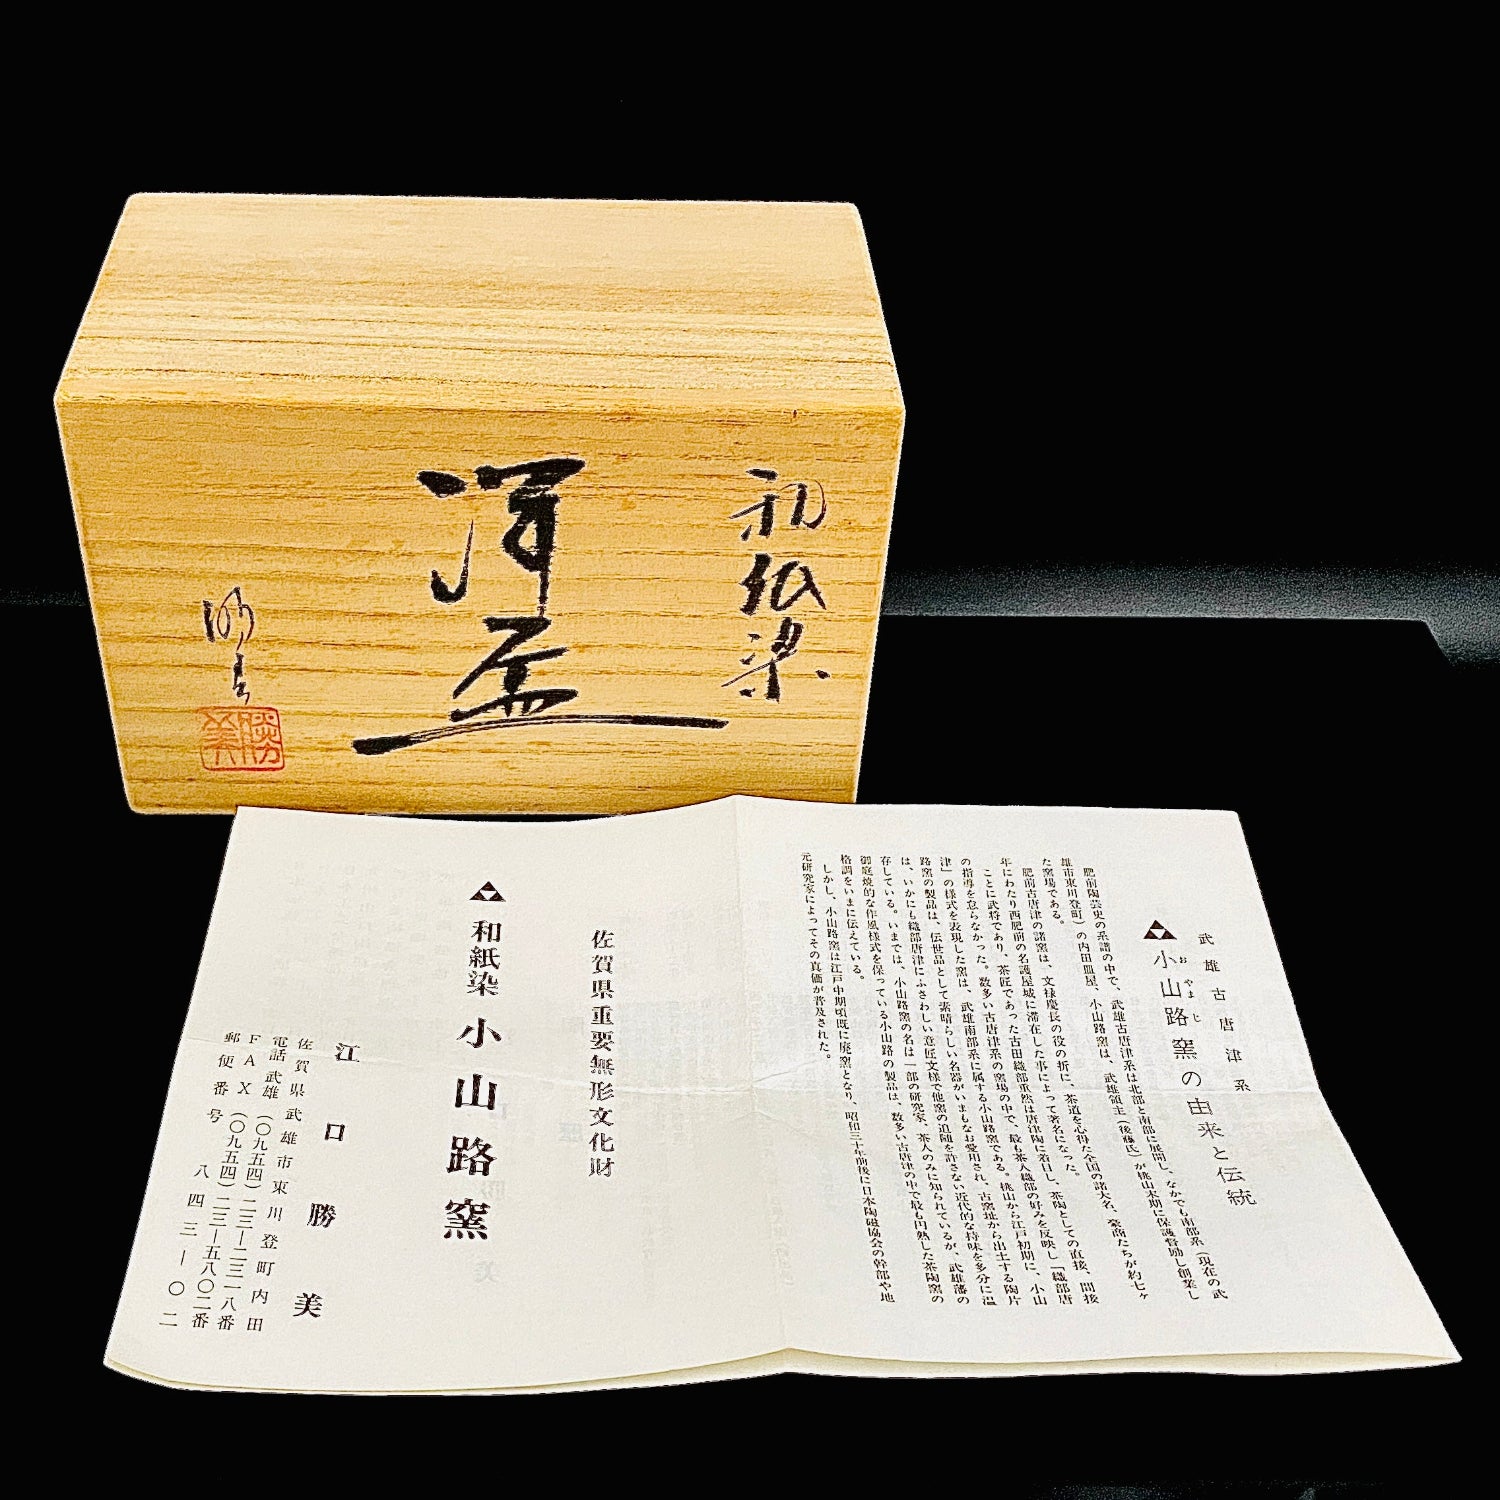 和紙染
洋盃
勝美
武雄古唐津系
小山路窯の由来と伝統
おやまじ
肥前陶芸史の系譜の中で、武雄古唐津系は北部と南部に展開し、なかでも南部系(現在の武
雄市東川登町)の内田皿屋、小山路窯は、武雄領主(後藤氏)が桃山末期に保護督励し創業し
た窯場である。
肥前古唐津の諸窯は、文禄慶長の役の折に、茶道を心得た全国の諸大名、豪商たちが約七ヶ
年にわたり西肥前の名護屋城に滞在した事によって著名になった。
ことに武将であり、茶匠であった古田織部重然は唐津陶に着目し、茶陶としての直接、間接
の指導を怠らなかった。数多い古唐津系の窯場の中で、最も茶人織部の好みを反映し「織部唐
津」の様式を表現した窯は、武雄南部系に属する小山路窯である。桃山から江戸初期に、小山
路窯の製品は、伝世品として素晴らしい名器がいまもなお愛用され、古窯址から出土する陶片
は、いかにも織部唐津にふさわしい意匠文様で他窯の追随を許さない近代的な持味を多分に温
存している。いまでは、小山路窯の名は一部の研究家、茶人のみに知られているが、武雄藩の
御庭焼的な作風様式を保っている小山路の製品は、数多い古唐津の中で最も円熟した茶陶窯の
格調をいまに伝えている。
しかし、小山路窯は江戸中期頃既に廃窯となり、昭和三十年前後に日本陶磁協会の幹部や地
元研究家によってその真価が普及された。
佐賀県重要無形文化財
和紙染 小山路窯
江口勝美
佐賀県武雄市東川登町内田
電話 武雄(〇九五四)二三―二三一八番
FAX(〇九五四)二三―五八〇二番
郵便番号 八四三―〇二